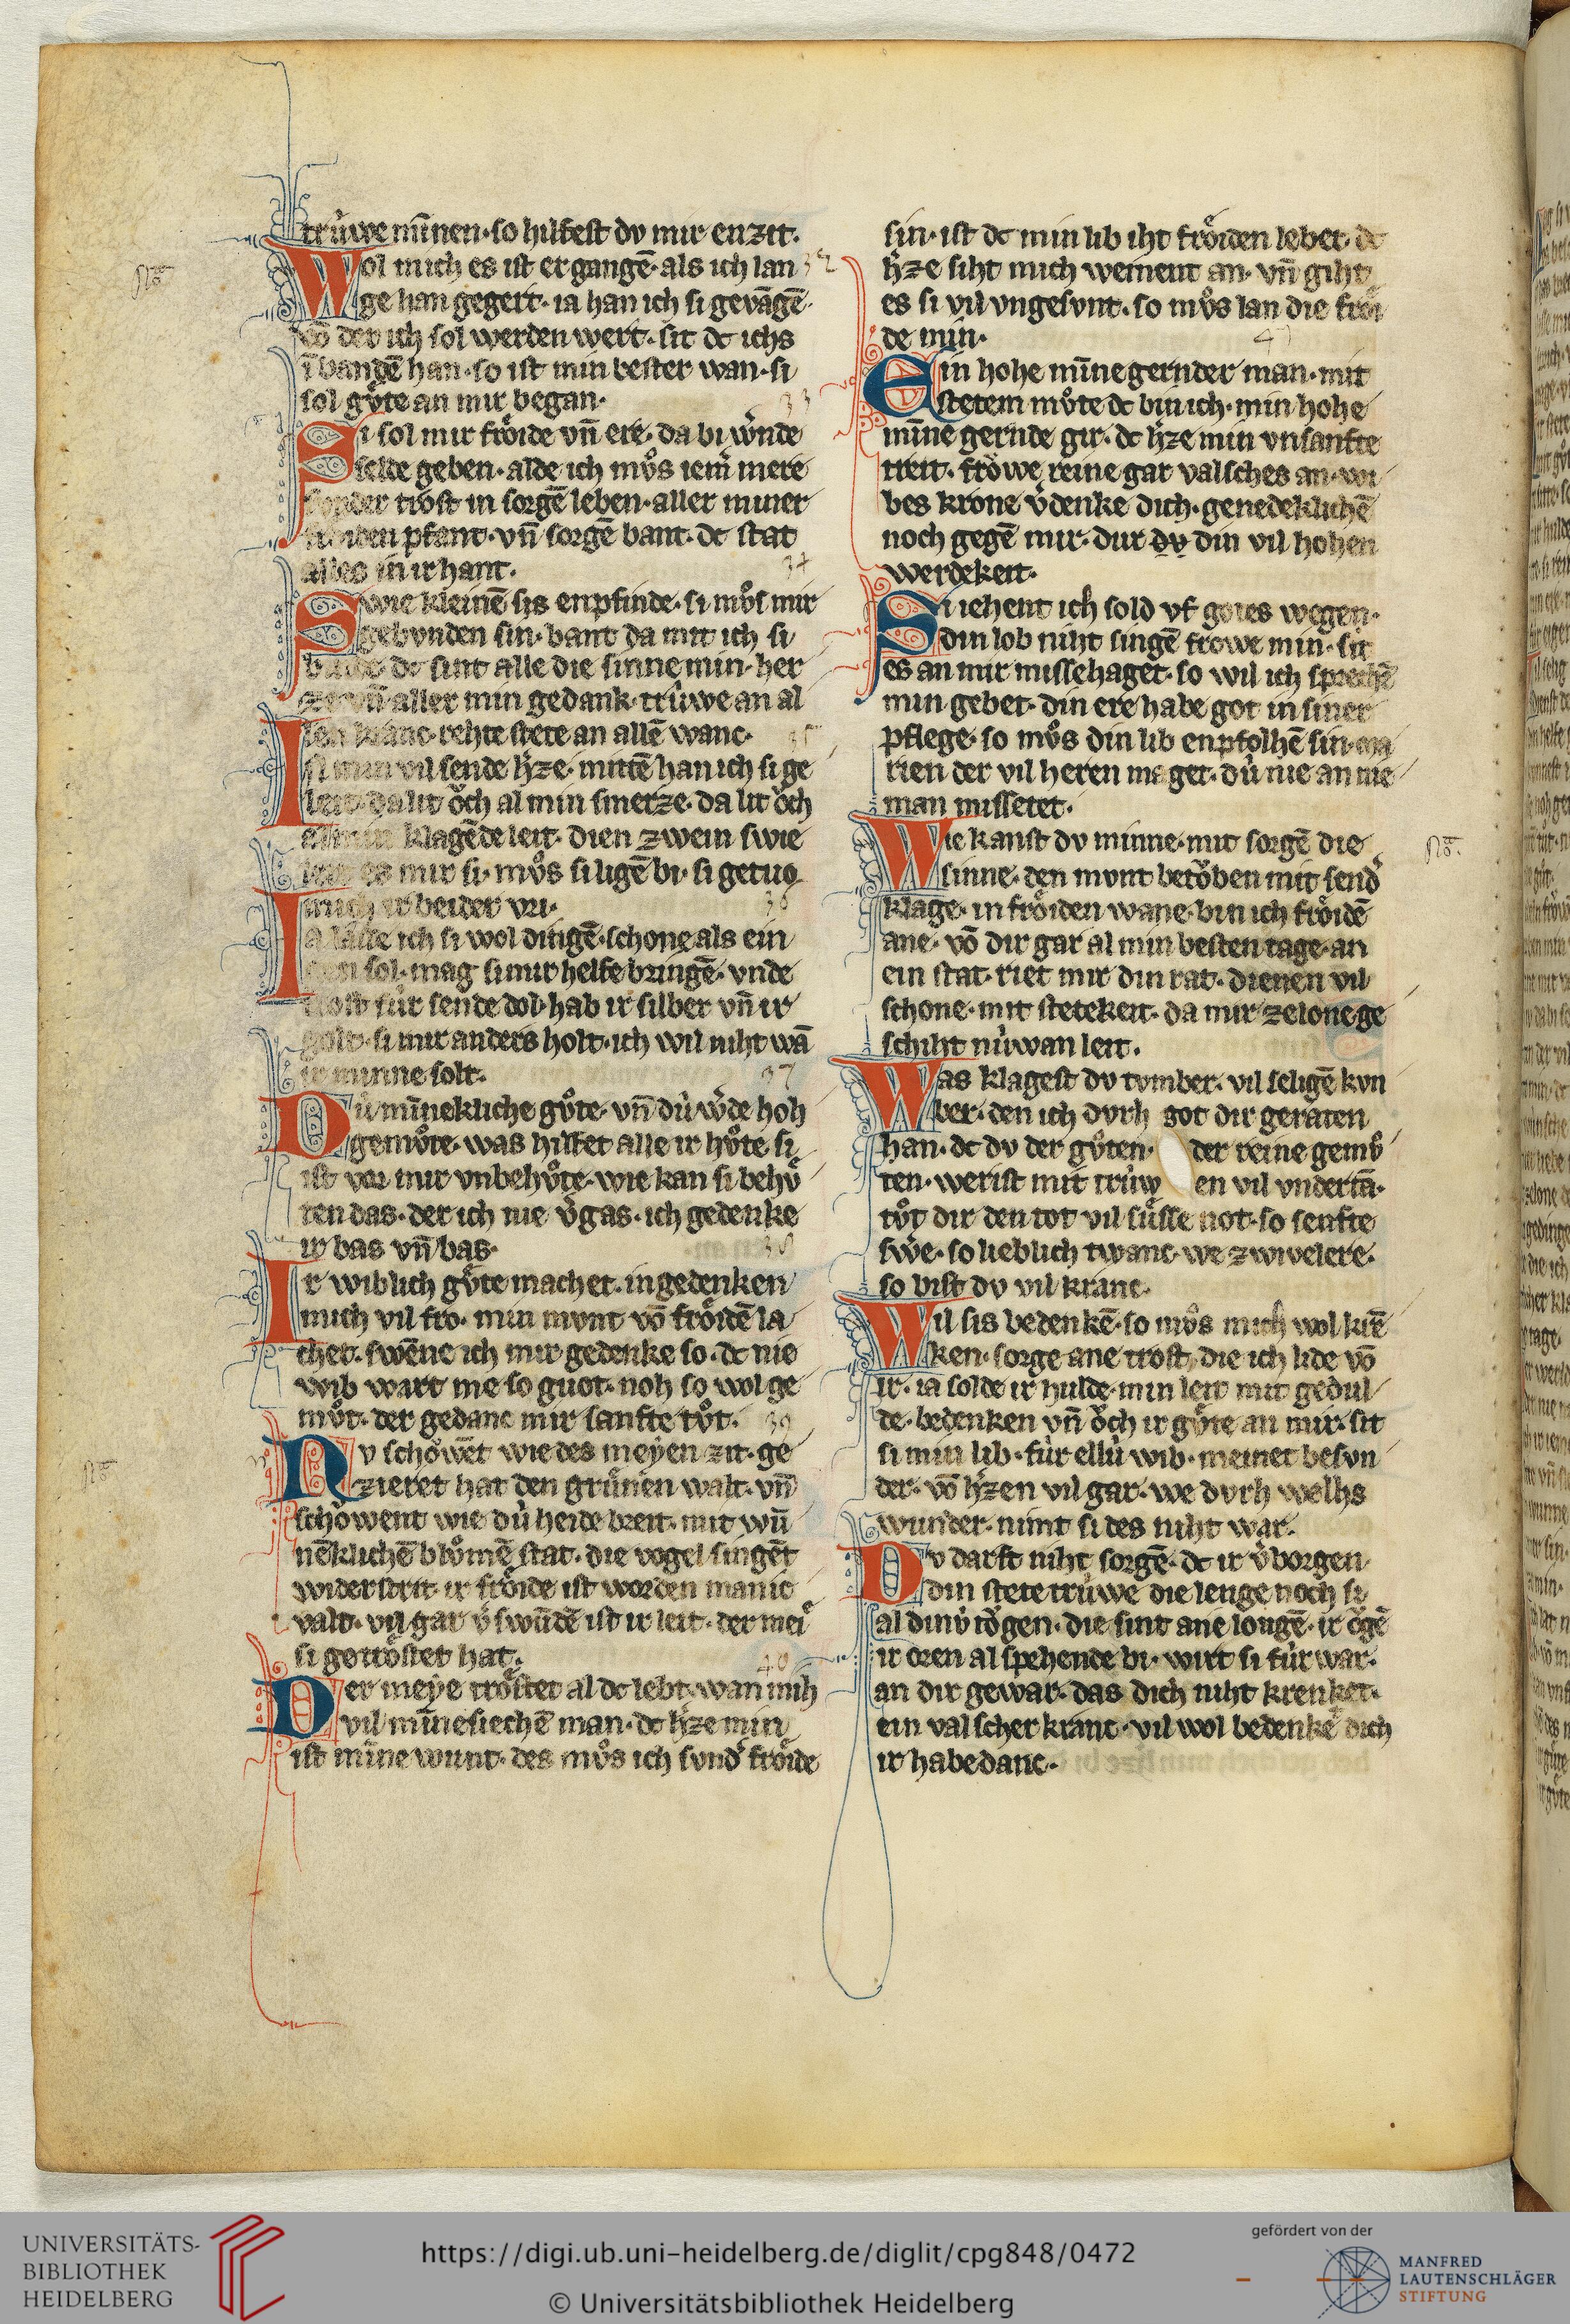 trúwe miñen· so hilfest dv mir enzit·
Wol mich es ist er gangē· als ich lan
ge han gegert· ia han ich si gevāgē·
vō der ich sol werden wert· sit dc ichs
ī bandē han· so ist min bester wan· si
sol gv̊te an mir began·
Si sol mir frôide vn̄ ere· da bi w̓nde
selde geben· alde ich mv̊s iem̄ mere
sonder trôst in sorgē leben· aller miner
frôiden pfant· vn̄ sorgē bant· dc stat
alles in ir hant·
Swie kleinē sis enpfinde· si mv̊s mir
gebvnden sin· bant da mit ich si
binde· dc sint alle die sinne min· her
ze vn̄ aller min gedank· trúwe an al
len kranc· rehte stete an allē wanc·
Ist min vil sende h̓ze· mittē han ich si ge
leit· da lit ôch al min smerze· da lit ôch
al min klagēde leit· dien zwein swie
leit es mir si· mv̊s si ligē bi· si getuo
mich ir beider vri·
Ia lasse ich si wol dingē· schone als ein
man sol· mag si mir helfe bringē· vnde
trost fúr sende dol· hab ir silber vn̄ ir
golt· si mir anders holt· ich wil niht wā
ir minne solt·
Dú miñekliche gv̊te· vn̄ dú w̓de hoh
gemv̊te· was hilfet alle ir hv̊te· si
ist vor mir vnbehv̊te· wie kan si behv̊
ten das· der ich nie v̓gas· ich gedenke
ir bas vn̄ bas·
Ir wiblich gv̊te machet· in gedenken
mich vil fro· min mvnt vō frôidē la
chet· swēne ich mir gedenke so· dc nie
wib wart me so guot· noh so wol ge
mv̊t· der gedanc mir sanfte tv̊t·
Nv schôwēt wie des meyen zit· ge
zieret hat den grv̊nen walt· vn̄
schôwent wie dú heide breit· mit wū
neklichē blv̊mē stat· die vogel singēt
wider strit· ir frôide ist worden manic
valt· vil gar v̓swūdē ist ir leit· der mei
si getrôstet hat·
Der meye trôstet al dc lebt· wan mih
vil miñesiechē man· dc h̓ze min
ist miñe wunt· des mv̊s ich svnd̓ frôide
sin· ist dc min lib iht frôiden lebet· dc
h̓ze siht mich weinent an· vn̄ giht
es si vil vngesvnt· so mv̊s lan die frôi
de min·
Ein hohe miñe gernder man· mit
stetem mv̊te dc bin ich· min hohe
miñe gernde gir· dc h̓ze min vnsanfte
treit· frôwe reine gar valsches an· wi
bes krone v̓denke dich· genedeklichē
noch gegē mir· dur dv din vil hohen
werdekeit·
Si iehent ich sold vf gotes wegen·
din lob niht singē frowe min· sit
es an mir missehaget· so wil ich sprechē
min gebet· din ere habe got in siner
pflege· so mv̊s din lib enpfolhē sin· ma
rien der vil heren maget· dú nie an nie
man missetet·
Wie kanst dv minne· mit sorgē die
sinne· den mvnt betôben mit send̓
klage· in frôiden wane· bin ich frôidē
ane· vō dir gar al min besten tage· an
ein stat· riet mir din rat· dienen vil
schone· mit stetekeit· da mir ze lone ge
schiht núwan leit·
Was klagest dv tvmber· vil seligē kvn
ber· den ich dvrh got dir geraten
han· dc dv der gv̊ten· der reine gemv̊
ten· werist mit trúw en vil vndertā·
tv̊t dir den tot vil sv̊sse not· so senfte
swe̓· so lieblich twanc· we zwivelere·
so bist dv vil kranc·
Wil sis bedenkē· so mv̊s mich wol krē
ken· sorge ane trost, die ich lide vō
ir· ia solde ir hulde· min leit mit gedul
de· bedenken vn̄ ôch ir gv̊te an mir· sit
si min lib· fúr ellú wib· meinet besvn
der· vō h̓zen vil gar· we dvrh welhs
wunder· nimt si des niht war·
Dv darft niht sorgē· dc ir v̓borgen
din stete trúwe die lenge noch si
al dinv́ tôgen· die sint ane lougē· ir ôgē
ir oren al spehende bi· wirt si fúr war·
an dir gewar· das dich niht krenket·
ein valscher kranc· vil wol bedenkē dich
ir habedanc·
32
33
34
35
36
37
38
39
40
41
UNIVERSITÄTS-
BIBLIOTHEK
HEIDELBERG
https://digi.ub.uni-heidelberg.de/diglit/cpg848/0472
© Universitätsbibliothek Heidelberg
gefördert von der
MANFRED
LAUTENSCHLÄGER
STIFTUNG